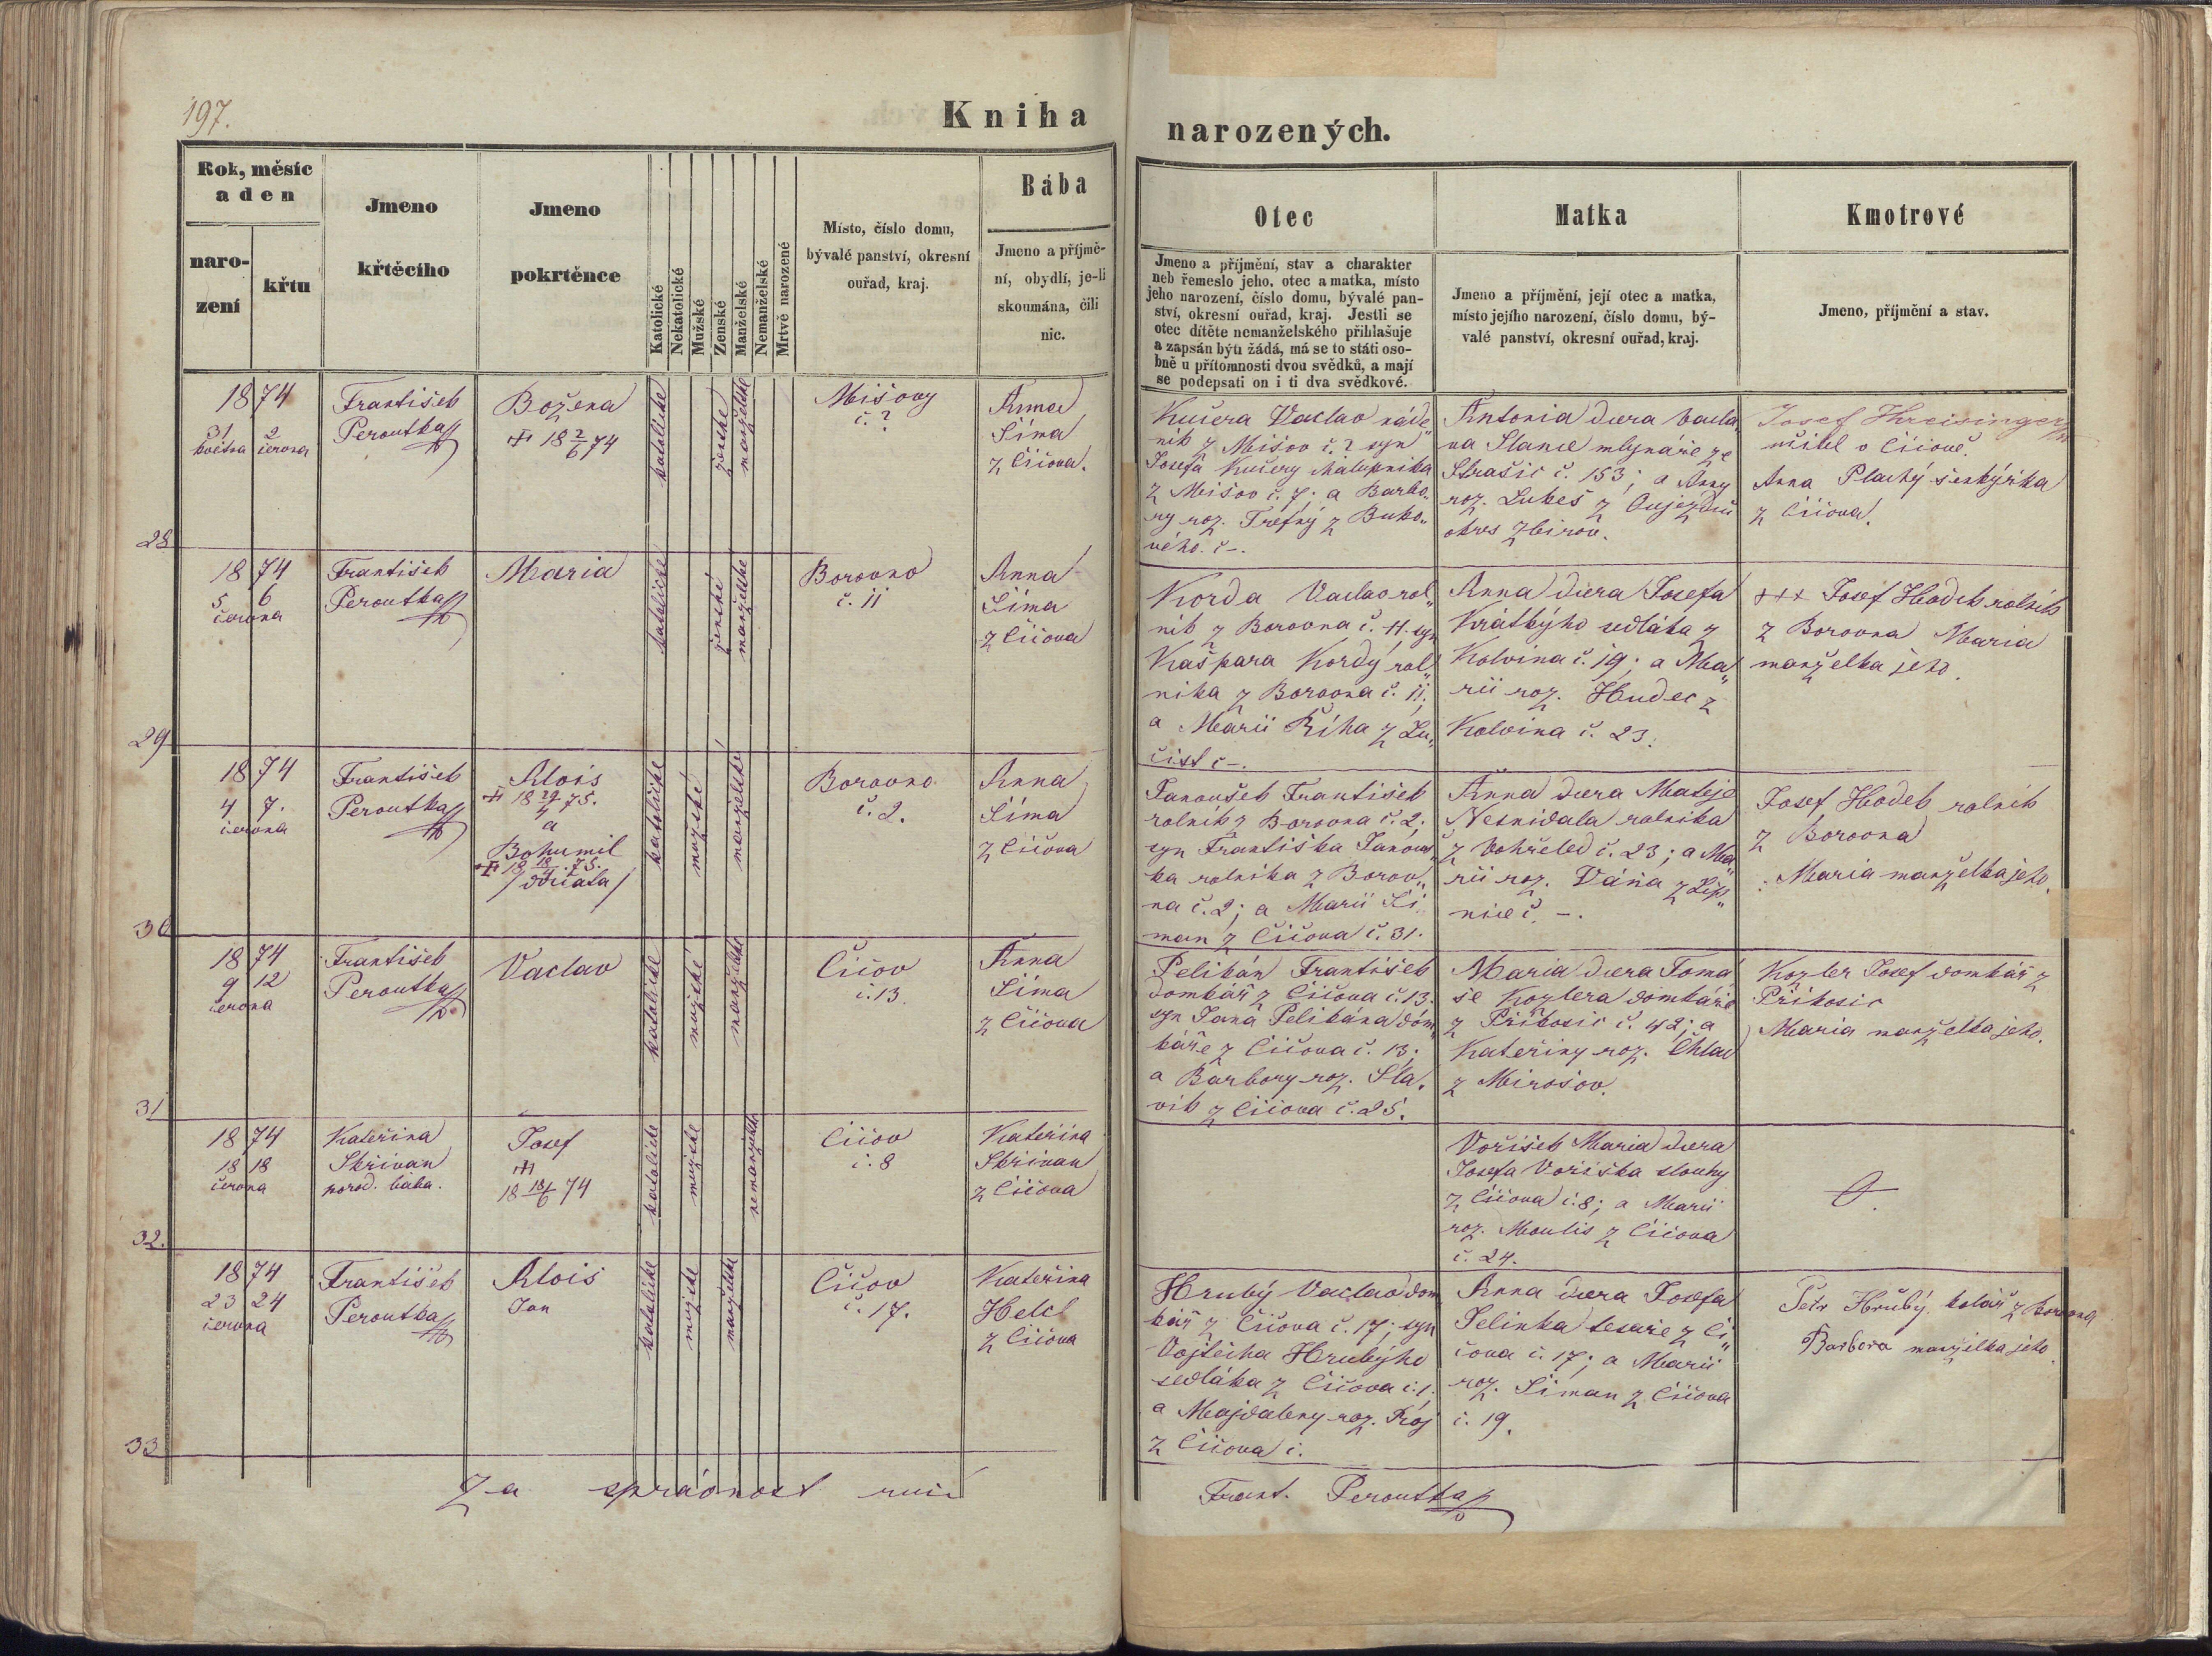 197.
Kniha
narozených.
Rok, měsíc
a den
naro-
zení
křtu
Jmeno
křtěcího
Jmeno
pokrtěnce
Katolické
Nekatolické
Mužské
Ženské
Manželské
Nemanželské
Mrtvě narozené
Místo, číslo domu,
bývalé panství, okresní
ouřad, kraj.
Bába
Jmeno a příjmě-
ní, obydlí, je-li
skoumána, čili
nic.
Otec
Jmeno a příjmění, stav a charakter
neb řemeslo jeho, otec a matka, místo
jeho narození, číslo domu, bývalé pan-
ství, okresní ouřad, kraj. Jestli se
otec dítěte nemanželského přihlašuje
a zapsán býti žádá, má se to státi oso-
bně u přítomnosti dvou svědků, a mají
se podepsati on i ti dva svědkové.
Matka
Jmeno a příjmění, její otec a matka,
místo jejího narození, číslo domu, bý-
valé panství, okresní ouřad, kraj.
Kmotrové
Jmeno, příjmění a stav.
28
1874
31 2
května června
František
Peroutka
Božena
18 2/6 74
katolické
ženské
manželské
Mišovy
č. ?
Anna
Šíma
z Číčova.
Kučera Vaclav náde„
ník z Mišov č. ? syn
Josefa Kučery chalupníka
z Mišov č. 7; a Barbo„
ry roz. Trefný z Buko„
vého. č -.
Antonia dcera Vacla„
va Slance mlynáře ze
Strašic č. 153; a Anny
roz. Lukeš z Oujezdu
okres Zbirov.
Josef Hreisinger
učitel v Číčově.
Anna Plachý šenkýřka
z Číčova.
29
1874
5 6
června
František
Peroutka
Maria
katolické
ženské
manželské
Borovno
č. 11
Anna
Šíma
z Číčova
Korda Vaclav rol„
ník z Borovna č. 11. syn
Kašpara Kordy rol„
níka z Borovna č. 11;
a Marii Říha z Lu„
čišt č -.
Anna dcera Josefa
Krátkýho sedláka z
Kolvína č. 19; a Ma„
rii roz. Hudec z
Kolvína č. 23.
+++ Josef Hodek rolník
z Borovna Maria
manželka jeho.
30
1874
4 7.
června
František
Peroutka
Alois
18 29/4 75.
a
Bohumil
18 18/4 75.
/dvojčata/
katolické
mužské
manželské
Borovno
č. 2.
Anna
Šíma
z Číčova
Janoušek František
rolník z Borovna č. 2;
syn Františka Janouš„
ka rolníka z Borov„
na č. 2; a Marii Ši
man z Číčova č. 31.
Anna dcera Matěje
Nesnídala rolníka
z Vohřeled č. 23; a Ma„
rii roz. Váňa z Lip„
nice č. -.
Josef Hodek rolník
z Borovna
Maria manželka jeho.
31
1874
9 12
června
František
Peroutka
Vaclav
katolické
mužské
manželské
Číčov
č. 13.
Anna
Šíma
z Číčova
Pelikán František
domkář z Číčova č. 13.
syn Jana Pelikána dom„
káře z Číčova č. 13;
a Barbory roz. Sla„
vík z Číčova č. 25.
Maria dcera Tomá
še Kozlera domkáře
z Příkosic č. 42; a
Kateřiny roz. Chlad
z Mirošov.
Kozler Josef domkář z
Příkosic
Maria manželka jeho.
32.
1874
18 18
června
Kateřina
Skřivan
porod. bába.
Josef
18 18/6 74
katolické
mužské
nemanželské
Číčov
č. 8
Kateřina
Skřivan
z Číčova
Voříšek Maria dcera
Josefa Voříška slouhy
z Číčova č. 8; a Marii
roz. Moulis z Číčova
č. 24.
33
1874
23 24
června
František
Peroutka
Alois
Jan
katolické
mužské
manželské
Číčov
č. 17.
Kateřina
Helcl
z Číčova
Hrubý Vaclav dom
kář z Číčova č. 17; syn
Vojtěcha Hrubýho
sedláka z Číčova č. 1.
a Majdaleny roz. Krój
z Číčova č.
Anna dcera Josefa
Jelínka tesaře z Čí„
čova č. 17; a Marii
roz. Šiman z Číčova
č. 19.
Petr Hrubý. kolář z Borovna
Barbora manželka jeho
Za správnost ručí
Frant. Peroutka